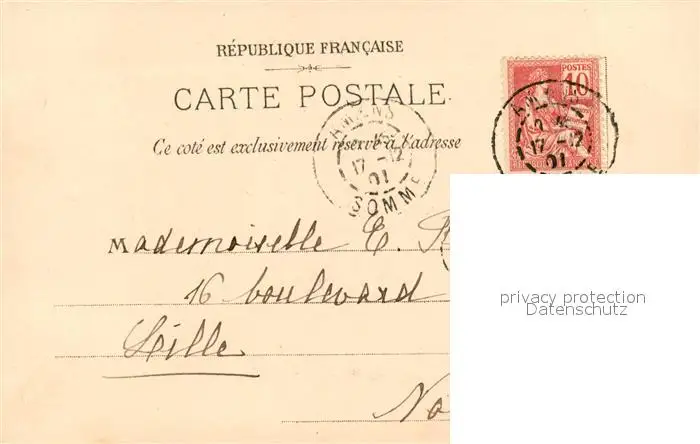 RÉPUBLIQUE FRANÇAISE
POSTES
10
CARTE POSTALE
AMIENS
17 -12
01
SOMME
17 -12
01
Ce coté est exclusivement réservé à l'adresse
Mademoiselle E.
16 boulevard
Lille
privacy protection
Datenschutz